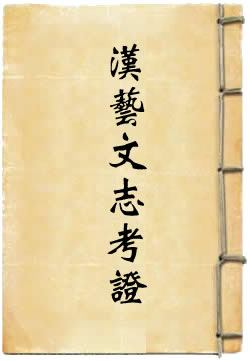 漢藝文志考證